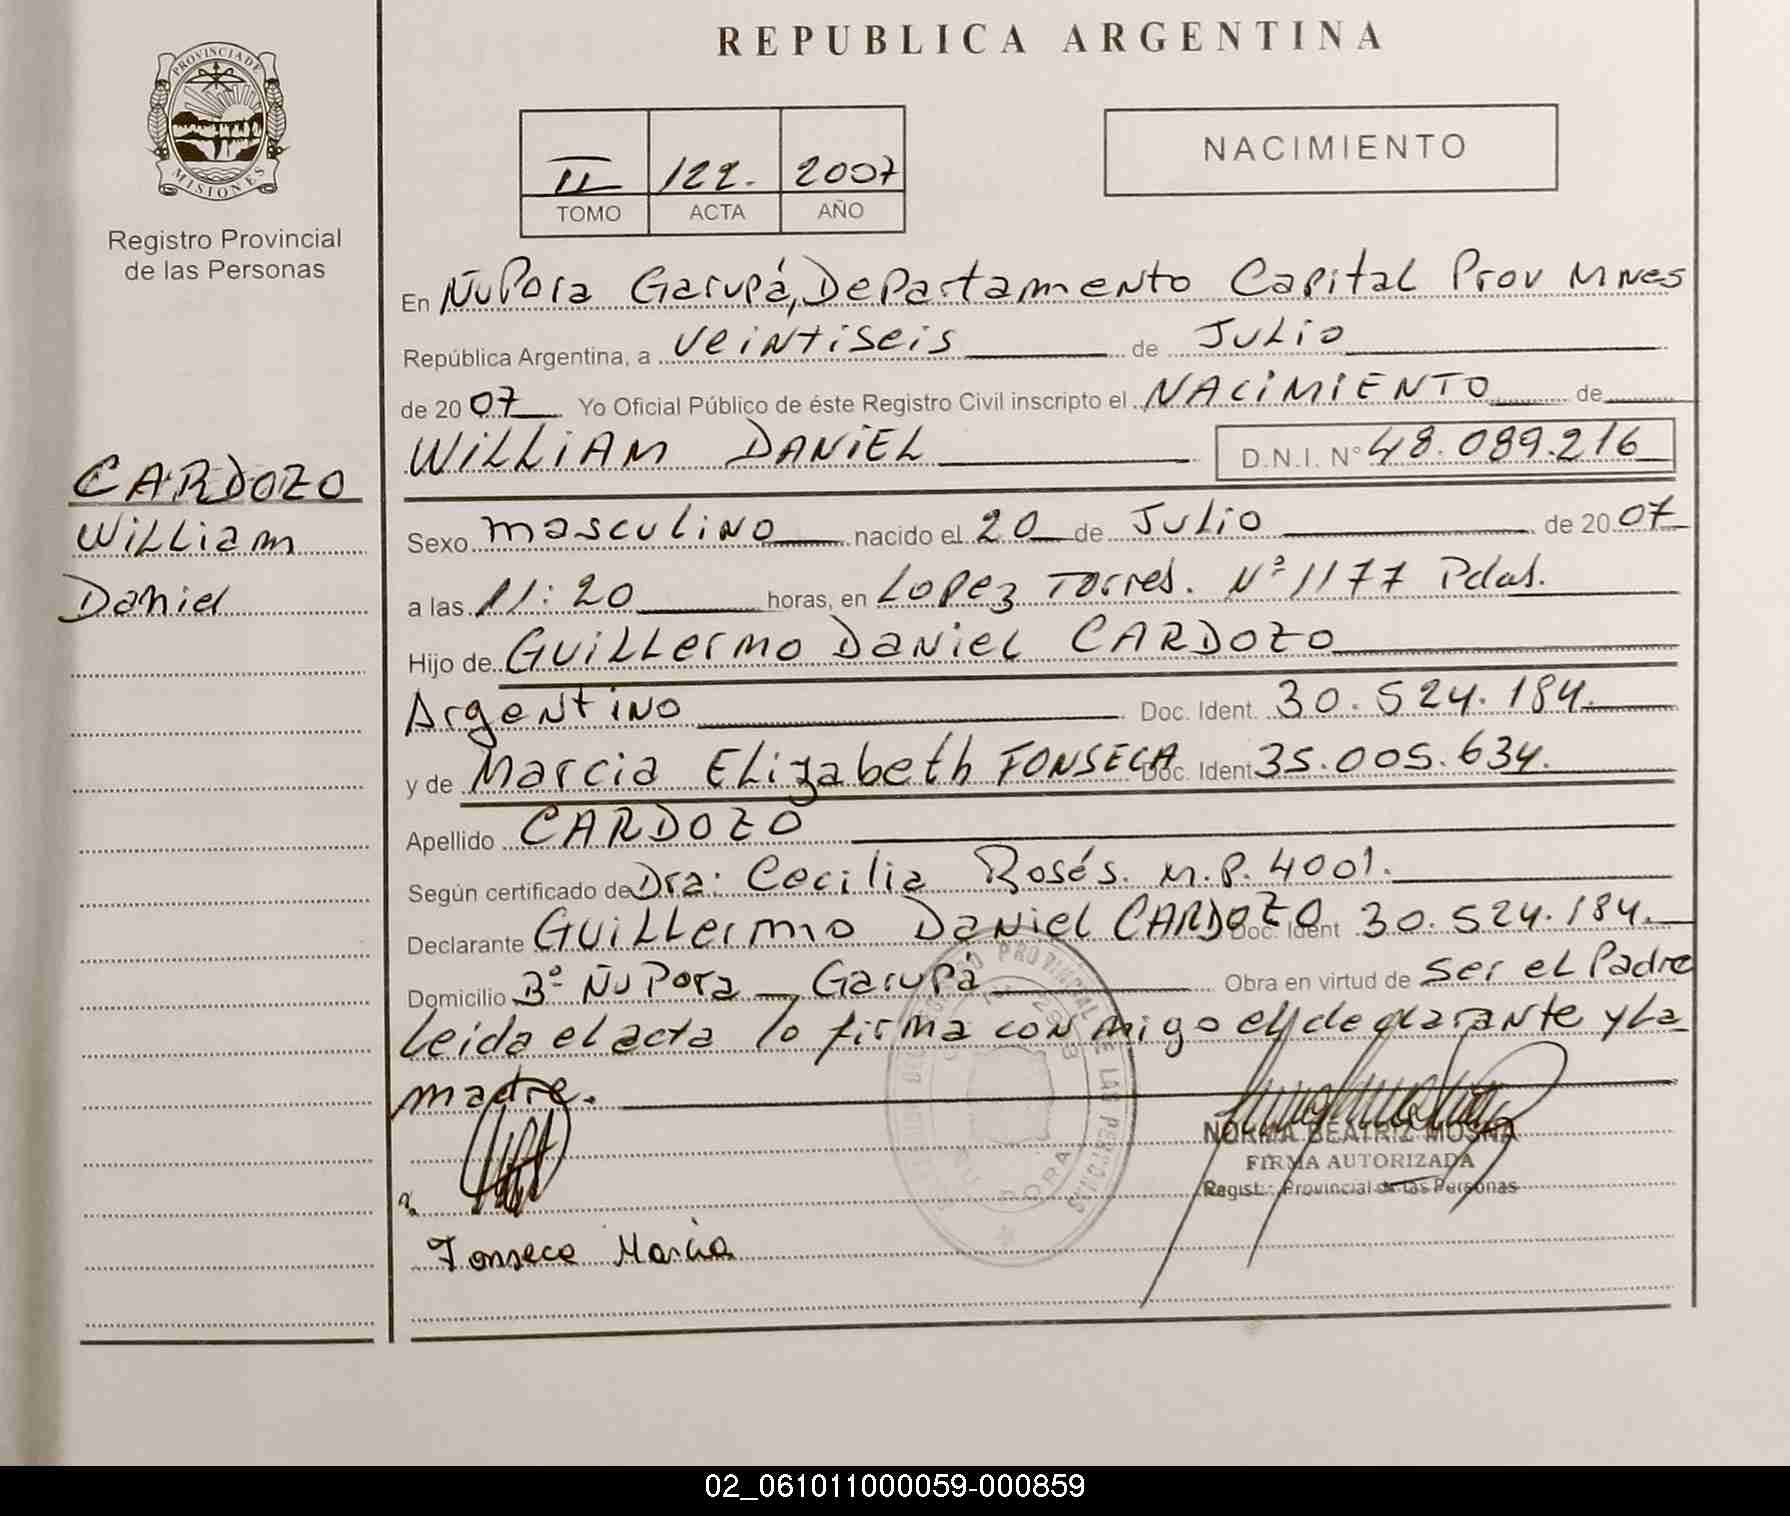 REPUBLICA ARGENTINA
PROVINCIA DE
MISIONES
Registro Provincial
de las Personas
II 122. 2007
TOMO ACTA AÑO
NACIMIENTO
CARDOZO
William
Daniel
En ÑuPora Garupá, Departamento Capital Prov Mnes
República Argentina, a veintiseis de Julio
de 2007 Yo Oficial Público de éste Registro Civil inscripto el NACIMIENTO de
WILLIAM DANIEL D.N.I. N° 48.089.216
Sexo masculino nacido el 20 de Julio de 2007
a las 11:20 horas, en Lopez Torres. Nº 1177 Pdas.
Hijo de Guillermo Daniel CARDOZO
Argentino Doc. Ident. 30.524.184.
y de Marcia Elizabeth FONSECA Doc. Ident 35.005.634.
Apellido CARDOZO
Según certificado de Dra: Cecilia Rosés. M.P. 4001.
Declarante Guillermo Daniel CARDOZO Doc. Ident 30.524.184.
Domicilio Bº ÑuPora - Garupá Obra en virtud de ser el Padre
Leida el acta lo firma con migo el declarante y La
madre.
NORMA BEATRIZ MOSNA
FIRMA AUTORIZADA
Regist. Provincial de las Personas
Fonseca Marcia
02_061011000059-000859